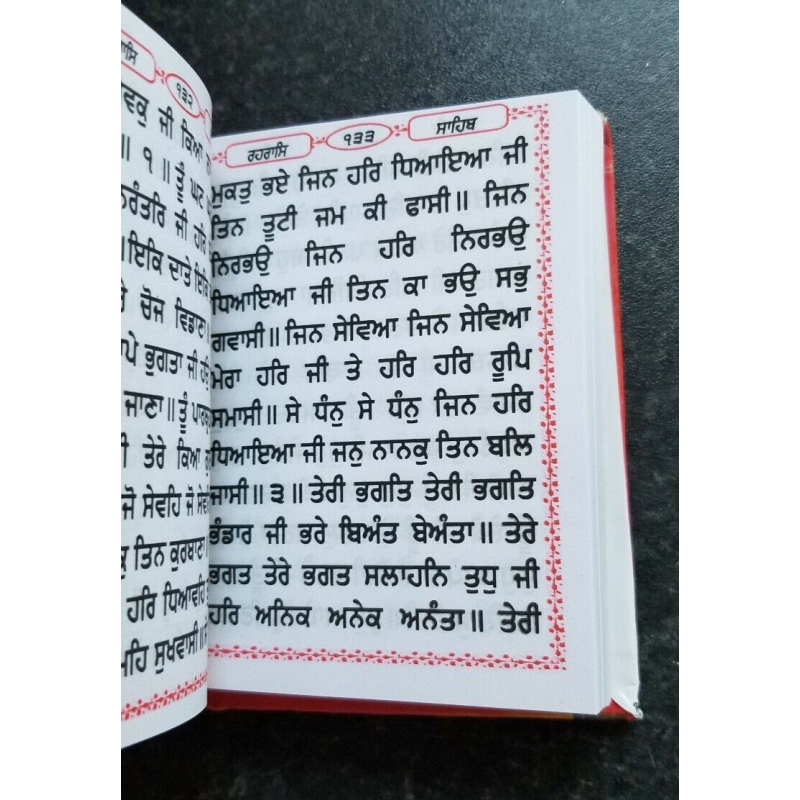 ਰਾਸਿ
੧੩੨
ਵਕੁ ਜੀ ਕਿਆ
॥ ੧ ॥ ਤੂੰ ਘਟ
ਨਰੰਤਰਿ ਜੀ ਹਰਿ
॥ਇਕਿ ਦਾਤੇ ਇਕਿ
ਰੇ ਚੋਜ ਵਿਡਾਣਾ
ਆਪੇ ਭੁਗਤਾ ਜੀ ਹਉ
ਜਾਣਾ॥ ਤੂੰ ਪਾਰਬ੍ਰ
ਤੇਰੇ ਕਿਆ
ਜੋ ਸੇਵਹਿ ਜੋ ਸੇਵਹਿ
ਕੁ ਤਿਨ ਕੁਰਬਾਣਾ॥
ਹਰਿ ਧਿਆਵਹਿ
ਮਹਿ ਸੁਖਵਾਸੀ॥
ਰਹਰਾਸਿ ੧੩੩ ਸਾਹਿਬ
ਮੁਕਤੁ ਭਏ ਜਿਨ ਹਰਿ ਧਿਆਇਆ ਜੀ
ਤਿਨ ਤੂਟੀ ਜਮ ਕੀ ਫਾਸੀ॥ ਜਿਨ
ਨਿਰਭਉ ਜਿਨ ਹਰਿ ਨਿਰਭਉ
ਧਿਆਇਆ ਜੀ ਤਿਨ ਕਾ ਭਉ ਸਭੁ
ਗਵਾਸੀ॥ ਜਿਨ ਸੇਵਿਆ ਜਿਨ ਸੇਵਿਆ
ਮੇਰਾ ਹਰਿ ਜੀ ਤੇ ਹਰਿ ਹਰਿ ਰੂਪਿ
ਸਮਾਸੀ॥ ਸੇ ਧੰਨੁ ਸੇ ਧੰਨੁ ਜਿਨ ਹਰਿ
ਧਿਆਇਆ ਜੀ ਜਨੁ ਨਾਨਕੁ ਤਿਨ ਬਲਿ
ਜਾਸੀ॥ ੩ ॥ ਤੇਰੀ ਭਗਤਿ ਤੇਰੀ ਭਗਤਿ
ਭੰਡਾਰ ਜੀ ਭਰੇ ਬਿਅੰਤ ਬੇਅੰਤਾ॥ ਤੇਰੇ
ਭਗਤ ਤੇਰੇ ਭਗਤ ਸਲਾਹਨਿ ਤੁਧੁ ਜੀ
ਹਰਿ ਅਨਿਕ ਅਨੇਕ ਅਨੰਤਾ॥ ਤੇਰੀ